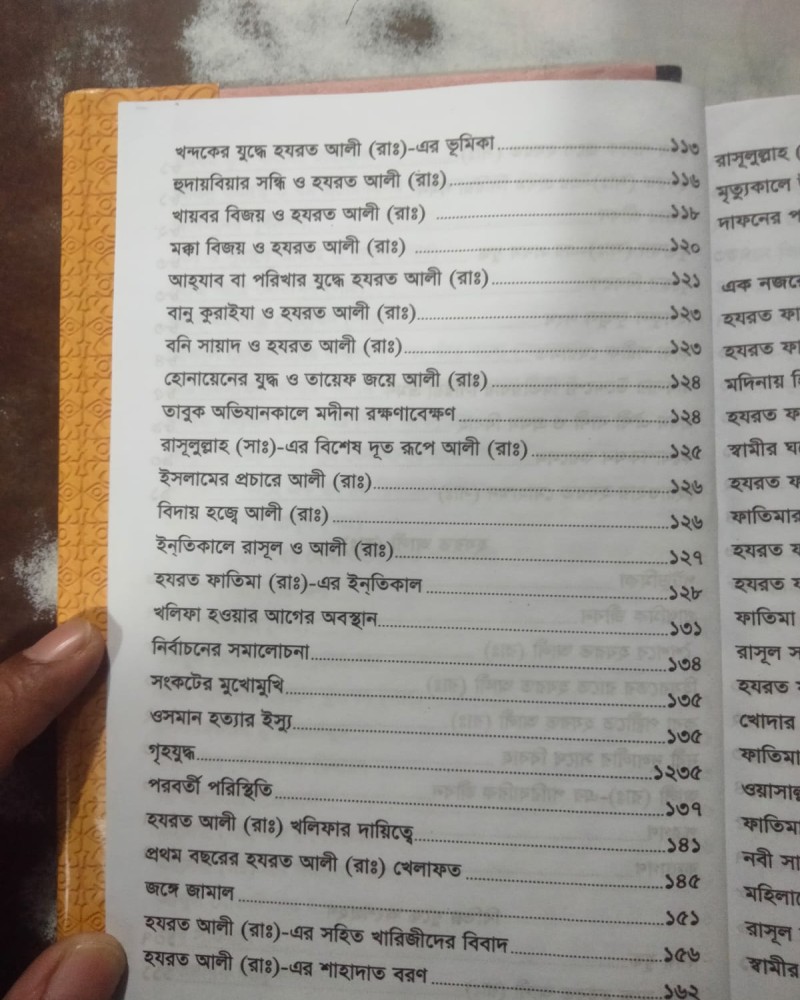 খন্দকের যুদ্ধে হযরত আলী (রাঃ)-এর ভূমিকা ..... ১১৩
হুদায়বিয়ার সন্ধি ও হযরত আলী (রাঃ) ..... ১১৬
খায়বর বিজয় ও হযরত আলী (রাঃ) ..... ১১৮
মক্কা বিজয় ও হযরত আলী (রাঃ) ..... ১২০
আহ্‌যাব বা পরিখার যুদ্ধে হযরত আলী (রাঃ) ..... ১২১
বানু কুরাইযা ও হযরত আলী (রাঃ) ..... ১২৩
বনি সায়াদ ও হযরত আলী (রাঃ) ..... ১২৩
হোনায়েনের যুদ্ধ ও তায়েফ জয়ে আলী (রাঃ) ..... ১২৪
তাবুক অভিযানকালে মদীনা রক্ষণাবেক্ষণ ..... ১২৪
রাসূলুল্লাহ (সাঃ)-এর বিশেষ দূত রূপে আলী (রাঃ) ..... ১২৫
ইসলামের প্রচারে আলী (রাঃ) ..... ১২৬
বিদায় হজ্বে আলী (রাঃ) ..... ১২৬
ইন্‌তিকালে রাসূল ও আলী (রাঃ) ..... ১২৭
হযরত ফাতিমা (রাঃ)-এর ইন্‌তিকাল ..... ১২৮
খলিফা হওয়ার আগের অবস্থান ..... ১৩১
নির্বাচনের সমালোচনা ..... ১৩৪
সংকটের মুখোমুখি ..... ১৩৫
ওসমান হত্যার ইস্যু ..... ১৩৫
গৃহযুদ্ধ ..... ১২৩৫
পরবর্তী পরিস্থিতি ..... ১৩৭
হযরত আলী (রাঃ) খলিফার দায়িত্বে ..... ১৪১
প্রথম বছরের হযরত আলী (রাঃ) খেলাফত ..... ১৪৫
জঙ্গে জামাল ..... ১৫১
হযরত আলী (রাঃ)-এর সহিত খারিজীদের বিবাদ ..... ১৫৬
হযরত আলী (রাঃ)-এর শাহাদাত বরণ ..... ১৬২
রাসূলুল্লাহ (
মৃত্যুকালে
দাফনের
এক নজরে
হযরত ফা
হযরত ফা
মদিনায়
হযরত ফ
স্বামীর
হযরত ফ
ফাতিমার
হযরত ফ
হযরত ফ
ফাতিমা
রাসূল স
হযরত
খোদার
ফাতিমা
ফাতিমা
নবী সা
রাসূল
স্বামীর